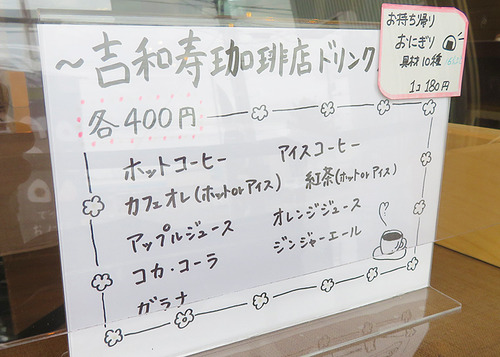 ～吉和寿珈琲店ドリンク
各400円
ホットコーヒー
アイスコーヒー
カフェオレ(ホットorアイス)
紅茶(ホットorアイス)
アップルジュース
オレンジジュース
コカ・コーラ
ジンジャーエール
ガラナ
お持ち帰り
おにぎり
具材10種
1コ 180円